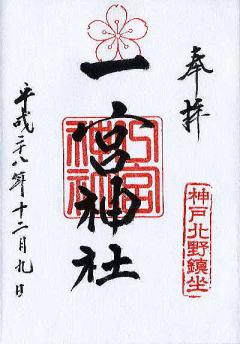 奉拝
神戸北野鎮坐
一宮神社
一宮神社
平成二十八年十二月九日